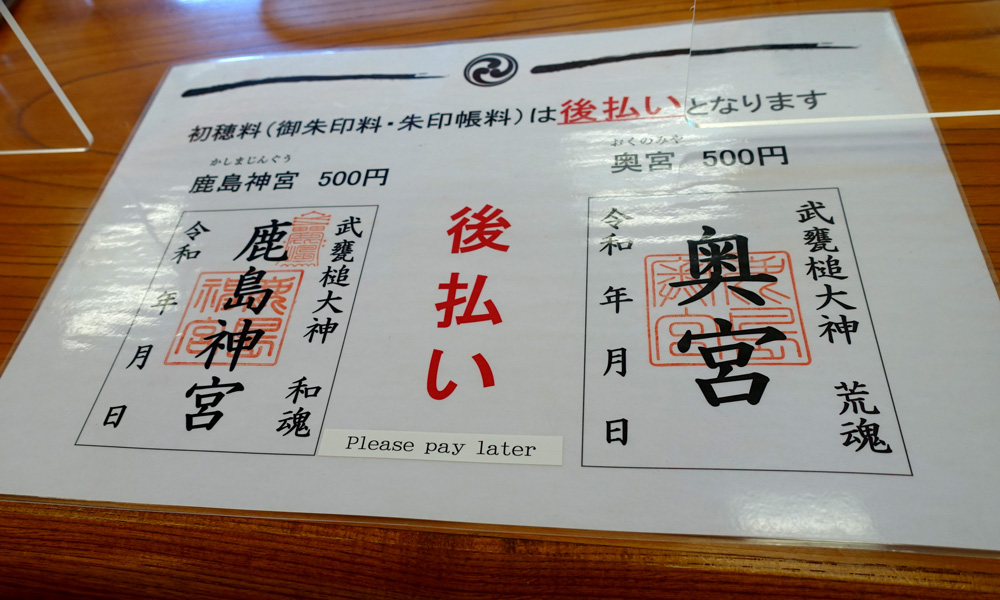 初穂料（御朱印料・朱印帳料）は後払いとなります
かしまじんぐう
鹿島神宮 500円
おくのみや
奥宮 500円
武甕槌大神 和魂
鹿島神宮
令和 年 月 日
後払い
Please pay later
武甕槌大神 荒魂
奥宮
令和 年 月 日